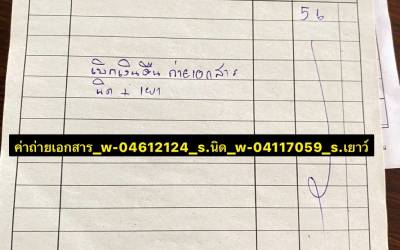 56
เบิกเงินคืน ถ่ายเอกสาร
นิด + เยา
ค่าถ่ายเอกสาร_w-04612124_s.นิด_w-04117059_s.เยาว์